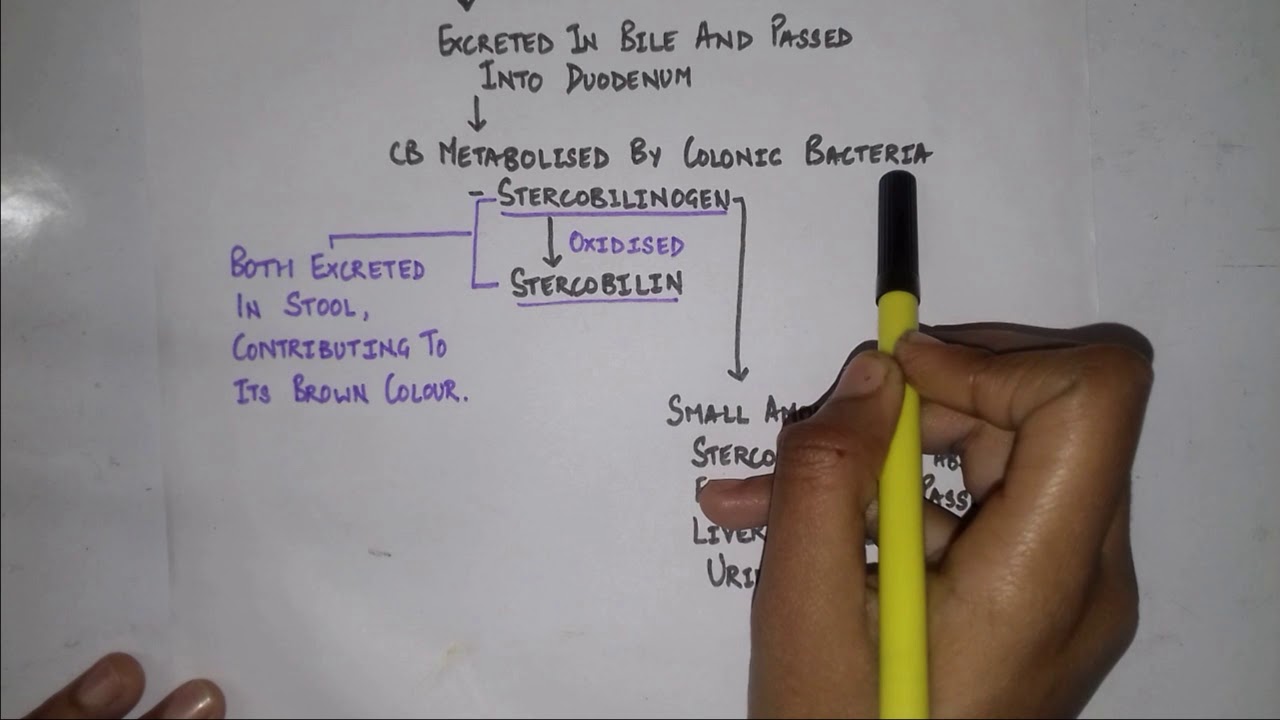 EXCRETED IN BILE AND PASSED
INTO DUODENUM
CB METABOLISED BY COLONIC BACTERIA
- STERCOBILINOGEN
OXIDISED
STERCOBILIN
BOTH EXCRETED
IN STOOL,
CONTRIBUTING TO
ITS BROWN COLOUR.
SMALL
LIVER